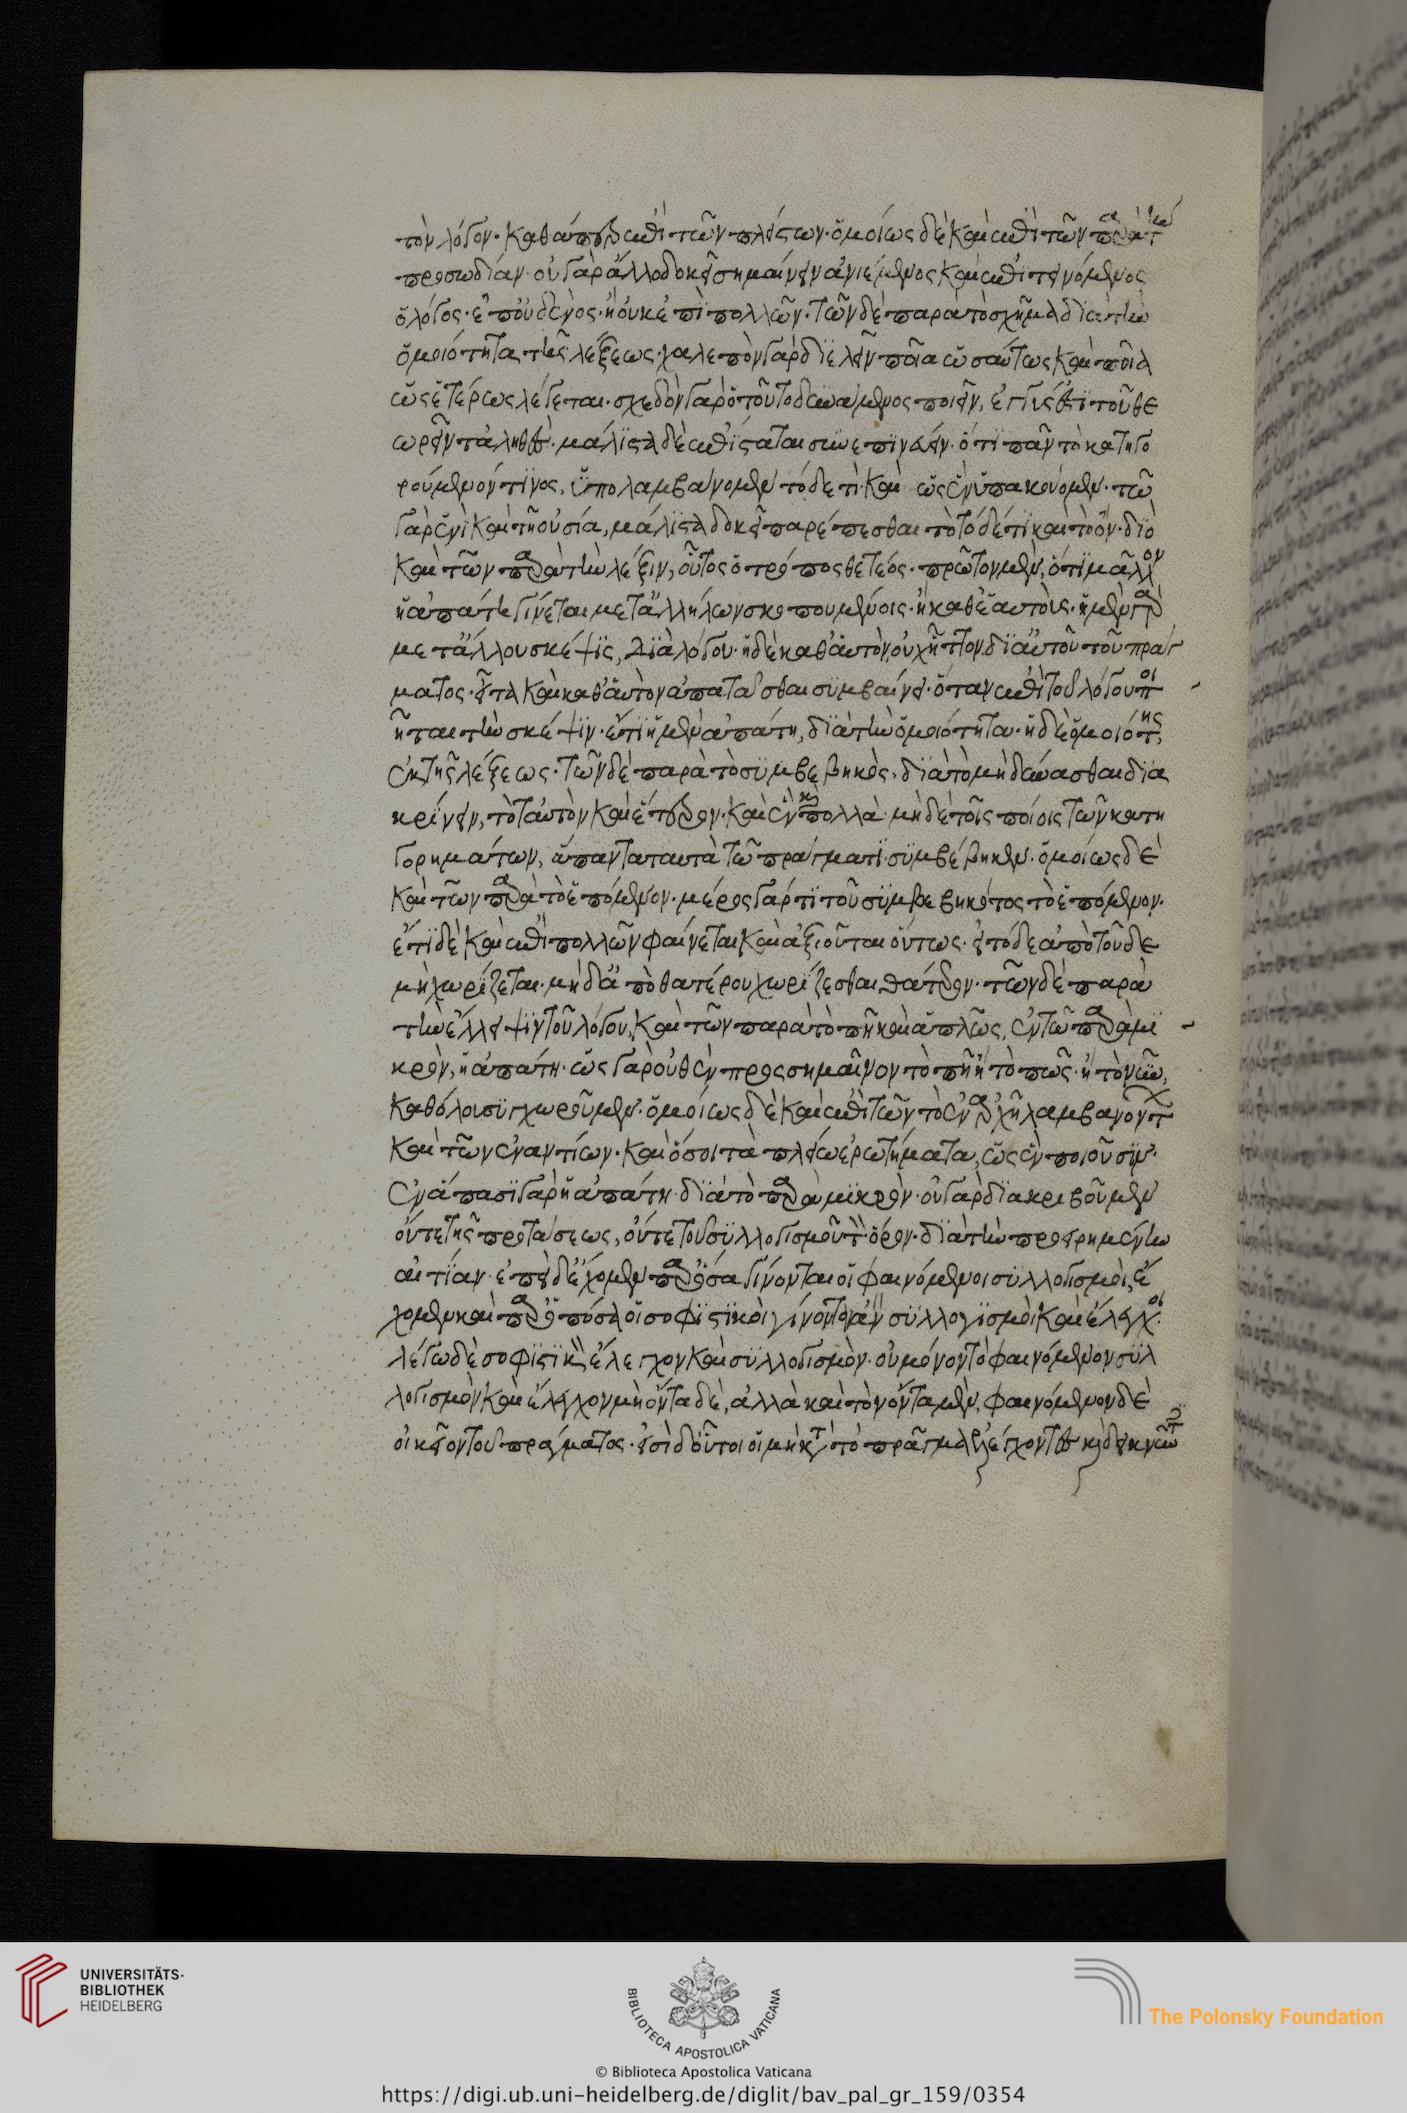 τὸν λόγον· καθάπερ ἐπὶ τῶν πλείστων· ὁμοίως δὲ καὶ ἐπὶ τῶν παρὰ τὴν
προσωδίαν· οὐ γὰρ ἄλλο δοκεῖ σημαίνειν ἀνιέμενος καὶ ἐπιτεινόμενος
ὁ λόγος· ἐπ' οὐδενὸς· ἢ οὐκ ἐπὶ πολλῶν· τῶν δὲ παρὰ τὸ σχῆμα διὰ τὴν
ὁμοιότητα τῆς λέξεως· χαλεπὸν γὰρ διελεῖν ποῖα ὡσαύτως καὶ ποῖα
ὡς ἑτέρως λέγεται· σχεδὸν γὰρ ὁ τοῦτο δυνάμενος ποιεῖν, ἐγγύς ἐστι τοῦ θε
ωρεῖν τἀληθές· μάλιστα δὲ ἐπίσταται συνεπινεύειν· ὅτι πᾶν τὸ κατηγο
ρούμενόν τινος, ὑπολαμβάνομεν τόδε τὶ· καὶ ὡς ἓν ὑπακούομεν· τῶ
γὰρ ἑνὶ καὶ τῇ οὐσία, μάλιστα δοκεῖ παρέπεσθαι τὸ τόδέ τι καὶ τὸ ὄν· διὸ
καὶ τῶν παρὰ τὴν λέξιν, οὗτος ὁ τρόπος θετέος· πρῶτον μὲν, ὅτι μᾶλλον
ἡ ἀπάτη γίνεται μετ' ἄλλήλων σκοπουμένοις· ἢ καθ' ἑαυτοὺς· ἡ μὲν γὰρ
μετ' ἄλλου σκέψις, διὰ λόγου· ἡ δὲ καθ' αὑτὸν, οὐχ ἧττον δι' αὐτοῦ τοῦ πράγ
ματος· εἶτα καὶ καθ' αὑτὸν ἀπατᾶσθαι συμβαίνει· ὅταν ἐπὶ τοῦ λόγου ποι
ῆται τὴν σκέψιν· ἔτι ἡ μὲν ἀπάτη, διὰ τὴν ὁμοιότητα· ἡ δὲ ὁμοιότης,
ἐκ τῆς λέξεως· τῶν δὲ παρὰ τὸ συμβεβηκὸς· διὰ τὸ μὴ δύνασθαι δια
κρίνειν, τὸ ταὐτὸν καὶ ἕτερον· καὶ ἓν καὶ πολλὰ· μὴ δὲ τοῖς ποίοις τῶν κατη
γορημάτων, ἅπαντα ταυτὰ τῶ πράγματι συμβέβηκεν· ὁμοίως δὲ
καὶ τῶν παρὰ τὸ ἑπόμενον· μέρος γάρ τι τοῦ συμβεβηκότος τὸ ἑπόμενον·
ἔτι δὲ καὶ ἐπὶ πολλῶν φαίνεται καὶ ἀξιοῦται οὕτως· εἰ τόδε ἀπὸ τοῦδε
μὴ χωρίζεται· μὴ δ' ἀπὸ θατέρου χωρίζεσθαι θάτερον· τῶν δὲ παρὰ
τὴν ἔλλειψιν τοῦ λόγου, καὶ τῶν παρὰ τὸ πῆ καὶ ἁπλῶς, ἐν τῶ παρὰ μι
κρὸν, ἡ ἀπάτη· ὡς γὰρ οὐθὲν προσσημαῖνον τὸ πῆ ἢ τὸ πῶς· ἢ τὸ νῦν,
καθόλου συγχωροῦμεν· ὁμοίως δὲ καὶ ἐπὶ τῶν τὸ ἐν ἀρχῆ λαμβανόντων
καὶ τῶν ἀναιτίων· καὶ ὅσοι τὰ πλείω ἐρωτήματα, ὡς ἓν ποιοῦσιν·
ἐν ἅπασι γὰρ ἡ ἀπάτη· διὰ τὸ παρὰ μικρὸν· οὐ γὰρ διακριβοῦμεν
οὔτε τῆς προτάσεως, οὔτε τοῦ συλλογισμοῦ τὸν ὅρον· διὰ τὴν προειρημένην
αἰτίαν· ἐπεὶ δ' ἔχομεν παρ' ὅσα γίνονται οἱ φαινόμενοι συλλογισμοὶ, ἔ
χομεν καὶ παρ' ὁπόσα οἱ σοφιστικοὶ γίνοιντ' ἂν συλλογισμοὶ καὶ ἔλεγχοι·
λέγω δὲ σοφιστικὸν ἔλεγχον καὶ συλλογισμὸν· οὐ μόνον τὸ φαινόμενον συλ
λογισμὸν καὶ ἔλεγχον μὴ ὄντα δὲ, ἀλλὰ καὶ τὸν ὄντα μὲν, φαινόμενον δὲ
οἰκεῖον τοῦ πράγματος· εἰσὶ δ' οὗτοι οἱ μὴ κατὰ τὸ πρᾶγμα ἐλέγχοντες καὶ δεικνύντες
UNIVERSITÄTS-
BIBLIOTHEK
HEIDELBERG
BIBLIOTECA APOSTOLICA VATICANA
The Polonsky Foundation
© Biblioteca Apostolica Vaticana
https://digi.ub.uni-heidelberg.de/diglit/bav_pal_gr_159/0354